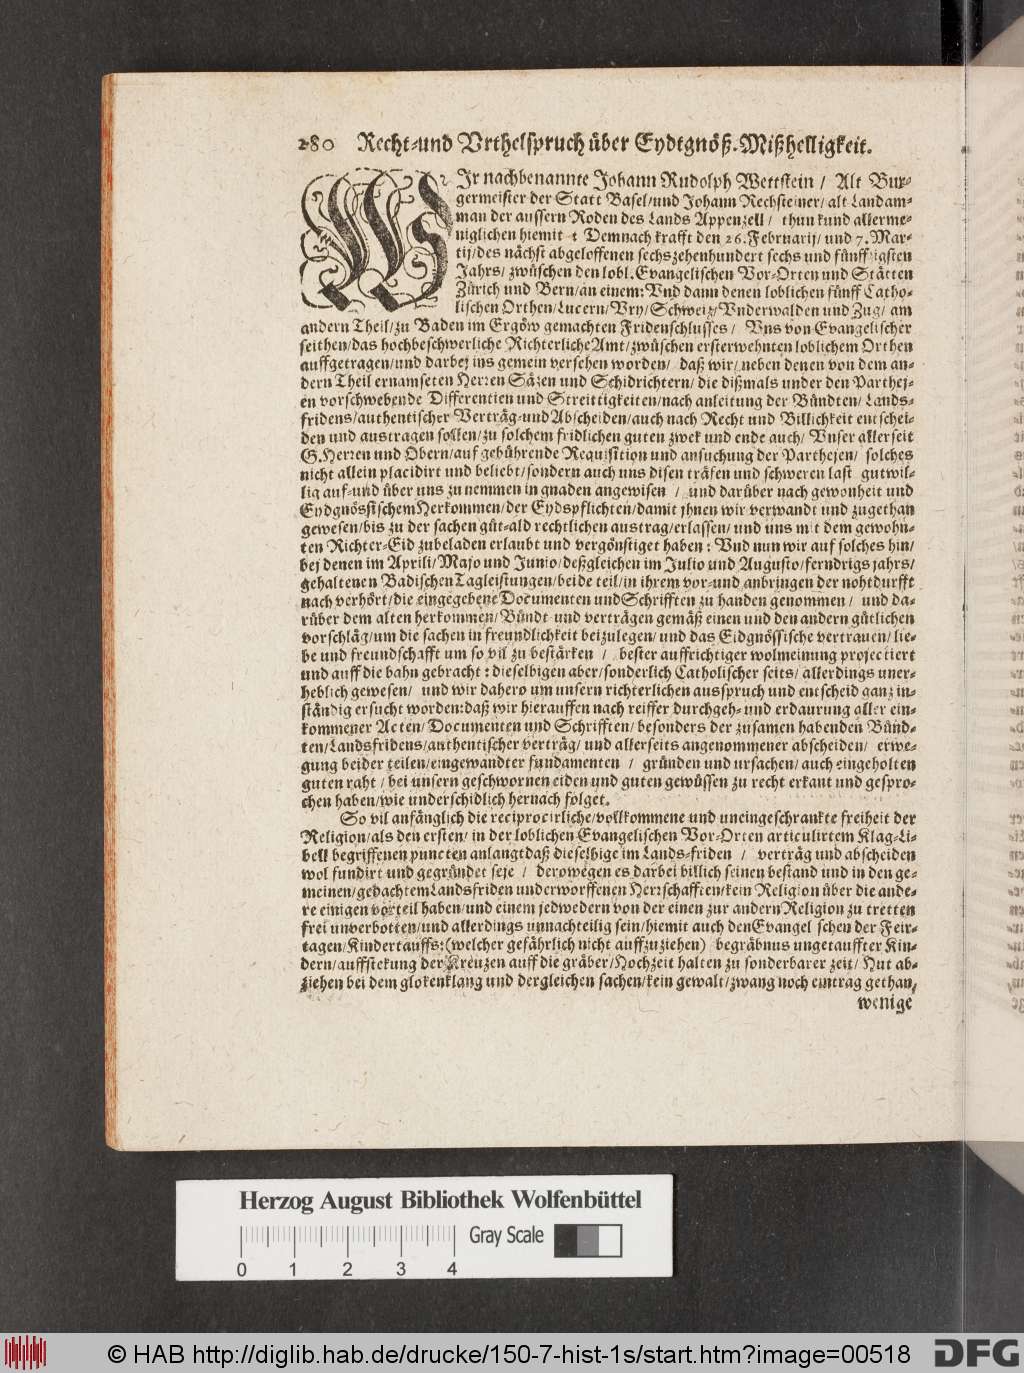 280 Recht-und Vrthelspruch über Eydtgnöß. Mißhelligkeit.
WIr nachbenannte Johann Rudolph Wettstein / Alt Bur-
germeister der Statt Basel/und Johann Rechsteiner/ alt Landam-
man der aussern Roden des Lands Appenzell / thun kund allerme-
niglichen hiemit : Demnach krafft den 26. Februarij/ und 7. Mar-
tij/des nächst abgeloffenen sechszehenhundert sechs und fünffzigsten
Jahrs/ zwüschen den lobl. Evangelischen Vor-Orten und Stätten
Zürich und Bern/ an einem: Vnd dann denen loblichen fünff Catho-
lischen Orthen/Lucern/Vry/Schweiz/Vnderwalden und Zug/ am
andern Theil/zu Baden im Ergöw gemachten Fridenschlusses / Vns von Evangelischer
seithen/das hochbeschwerliche Richterliche Amt/zwüschen ersterwehnten loblichem Orthen
auffgetragen/und darbej ins gemein versehen worden/ daß wir/neben denen von dem an-
dern Theil ernamseten Herren Säzen und Schidrichtern/die dißmals under den Parthej-
en vorschwebende Differentien und Streittigkeiten/nach anleitung der Bündten/Lands-
fridens/authentischer Verträg-und Abscheiden/auch nach Recht und Billichkeit entschei-
den und austragen sollen/zu solchem fridlichen guten zwek und ende auch/ Vnser allerseit
G. Herren und Obern/auf gebührende Requisition und ansuchung der Parthejen/ solches
nicht allein placidirt und beliebt/sondern auch uns disen träfen und schweren last gutwil-
lig auf-und über uns zu nemmen in gnaden angewisen / und darüber nach gewonheit und
Eydgnössischem Herkommen/der Eydspflichten/damit jhnen wir verwandt und zugethan
gewesen/bis zu der sachen güt-ald rechtlichen austrag/erlassen/ und uns mit dem gewohn-
ten Richter-Eid zubeladen erlaubt und vergönstiget haben : Vnd nun wir auf solches hin/
bej denen im Aprili/Majo und Junio/deßgleichen im Julio und Augusto/ferndrigs jahrs/
gehaltenen Badischen Tagleistungen/beide teil/in ihrem vor-und anbringen der nohtdurfft
nach verhört/die eingegebene Documenten und Schrifften zu handen genommen / und da-
rüber dem alten herkommen/Bündt-und verträgen gemäß einen und den andern gütlichen
vorschläg/um die sachen in freundlichkeit beizulegen/und das Eidgnössische vertrauen/lie-
be und freundschafft um so vil zu bestärken / bester auffrichtiger wolmeinung projectiert
und auff die bahn gebracht : dieselbigen aber/sonderlich Catholischer seits/ allerdings uner-
heblich gewesen/ und wir dahero um unsern richterlichen ausspruch und entscheid ganz in-
ständig ersucht worden:daß wir hierauffen nach reiffer durchgeh-und erdaurung aller ein-
kommener Acten/Documenten und Schrifften/besonders der zusamen habenden Bünd-
ten/Landsfridens/authentischer verträg/ und allerseits angenommener abscheiden/ erwe-
gung beider teilen/eingewandter fundamenten / gründen und ursachen/ auch eingeholten
guten raht / bei unsern geschwornen eiden und guten gewüssen zu recht erkant und gespro-
chen haben/wie underschidlich hernach folget.
So vil anfänglich die reciprocirliche/vollkommene und uneingeschrankte freiheit der
Religion/als den ersten/ in der loblichen Evangelischen Vor-Orten articulirtem Klag-Li-
bell begriffenen puncten anlangt daß dieselbige im Lands-friden / verträg und abscheiden
wol fundirt und gegründet seje / derowegen es darbei billich seinen bestand und in den ge-
meinen/gedachtem Landsfriden underworffenen Herrschafften/kein Religion über die ande-
re einigen vorteil haben/und einem jedwedern von der einen zur andern Religion zu tretten
frei unverbotten/und allerdings unnachteilig sein/hiemit auch den Evangel schen der Feir-
tagen/Kindertauffs:(welcher gefährlich nicht auffzuziehen) begräbnus ungetauffter Kin-
dern/auffstekung der Kreuzen auff die gräber/Hochzeit halten zu sonderbarer zeit/ Hut ab-
ziehen bei dem glokenklang und dergleichen sachen/kein gewalt/zwang noch eintrag gethan/
wenige
Herzog August Bibliothek Wolfenbüttel
Gray Scale
0 1 2 3 4
© HAB http://diglib.hab.de/drucke/150-7-hist-1s/start.htm?image=00518
DFG